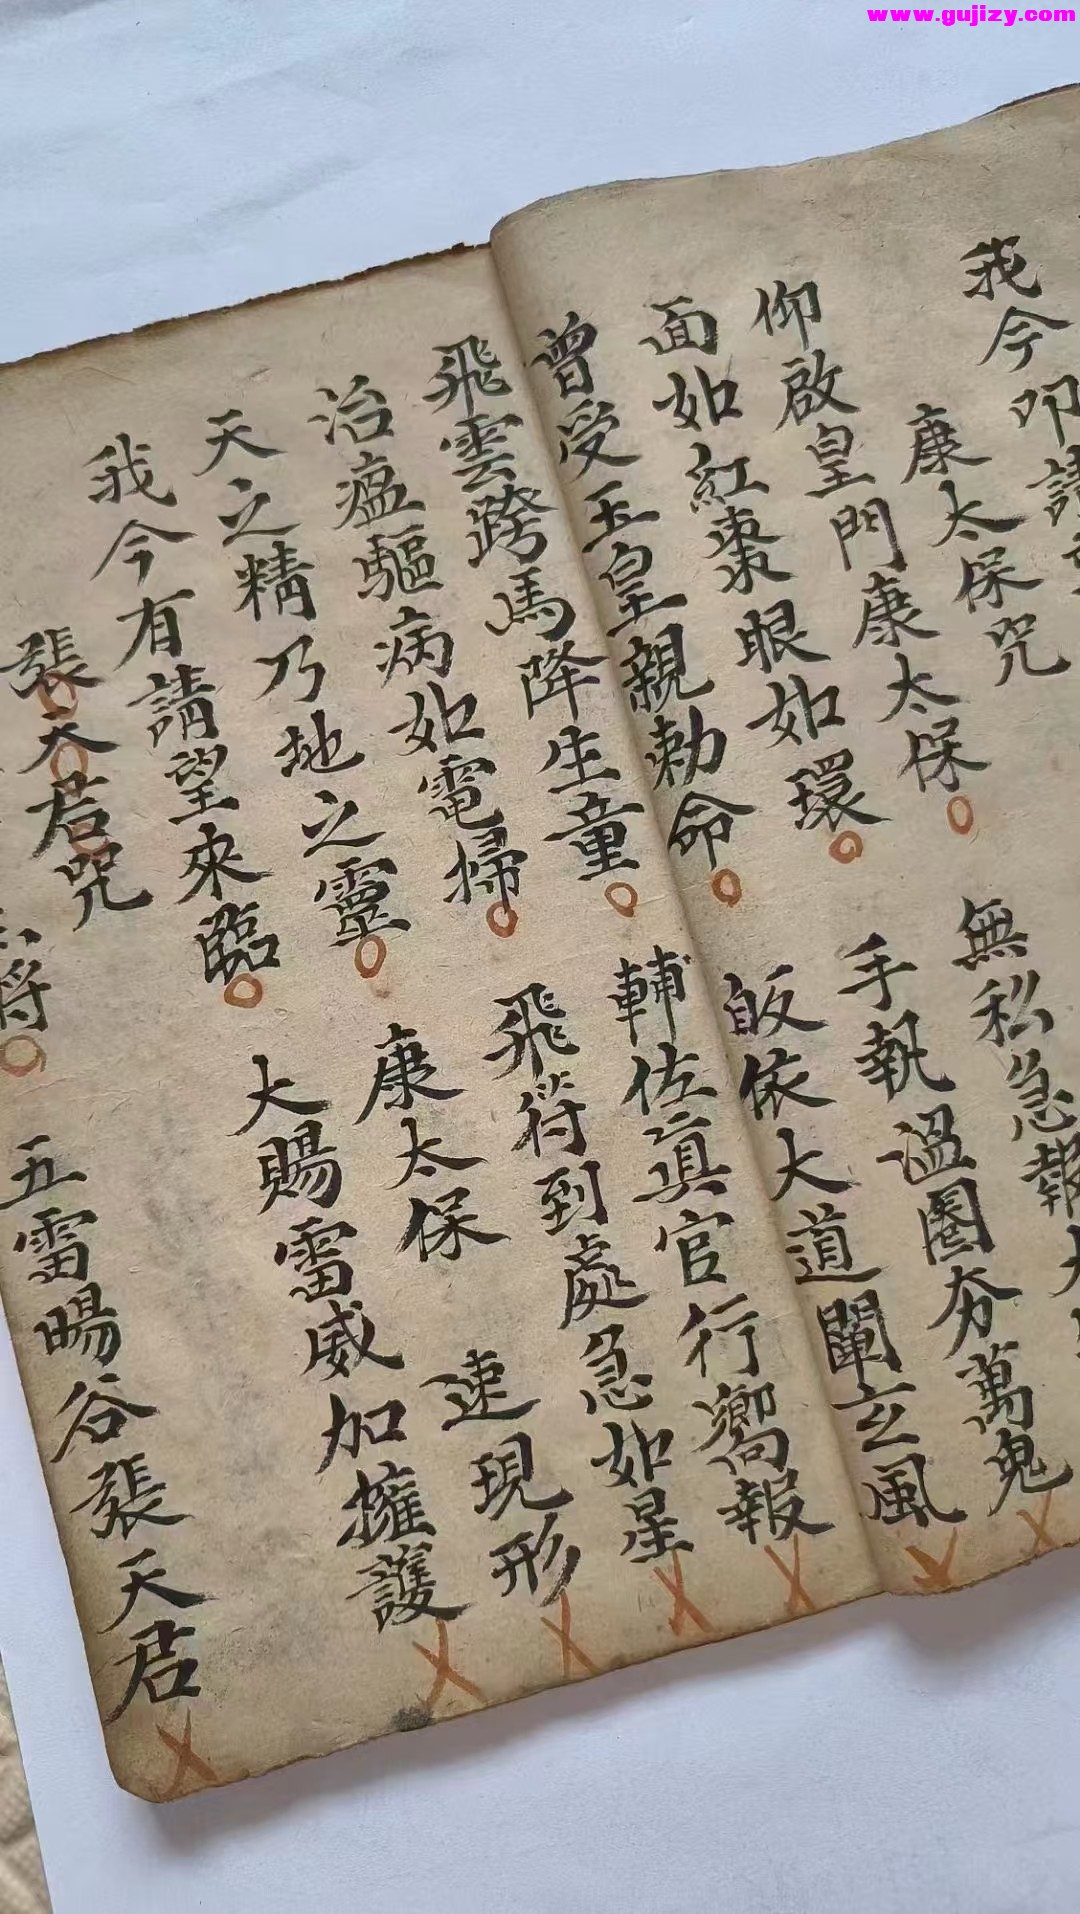 www.gujizy.com
我今叩請 無私急報
康太保咒
仰啟皇門康太保 手執溫圈夯萬鬼
面如紅棗眼如環 皈依大道闡玄風
曾受玉皇親勅命 輔佐真官行嚮報
飛雲跨馬降生童 飛符到處急如星
治瘟驅病如電掃 康太保 速現形
天之精乃地之靈 大賜雷威加擁護
我今有請望來臨
張天君咒
將 五雷暘谷張天君